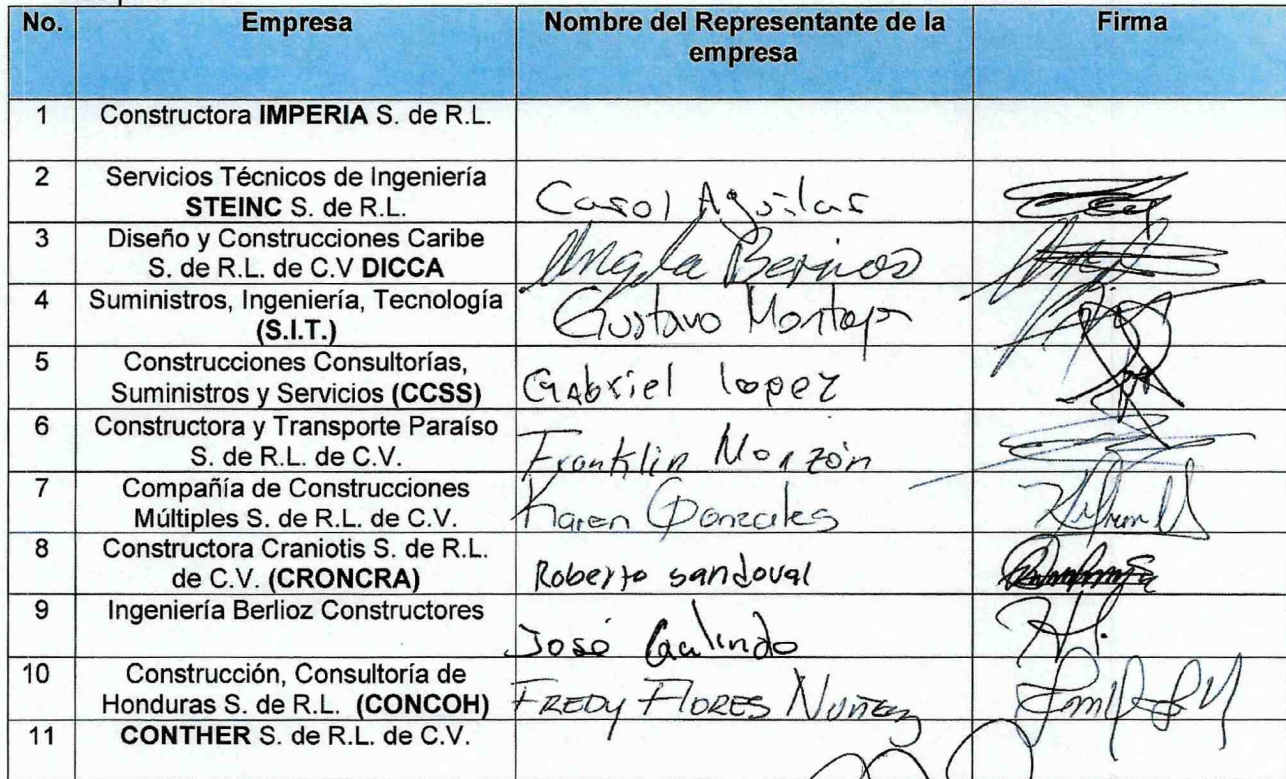 No. Empresa Nombre del Representante de la empresa Firma
1 Constructora IMPERIA S. de R.L.
2 Servicios Técnicos de Ingeniería
STEINC S. de R.L. Carol Aguilar
3 Diseño y Construcciones Caribe
S. de R.L. de C.V DICCA Angela
4 Suministros, Ingeniería, Tecnología
(S.I.T.) Gustavo
5 Construcciones Consultorías,
Suministros y Servicios (CCSS) Gabriel lopez
6 Constructora y Transporte Paraíso
S. de R.L. de C.V. Franklin Monzón
7 Compañía de Construcciones
Múltiples S. de R.L. de C.V. Karen Gonzales
8 Constructora Craniotis S. de R.L.
de C.V. (CRONCRA) Roberto sandoval
9 Ingeniería Berlioz Constructores
José Galindo
10 Construcción, Consultoría de
Honduras S. de R.L. (CONCOH) FREDY FLORES NUÑEZ
11 CONTHER S. de R.L. de C.V.